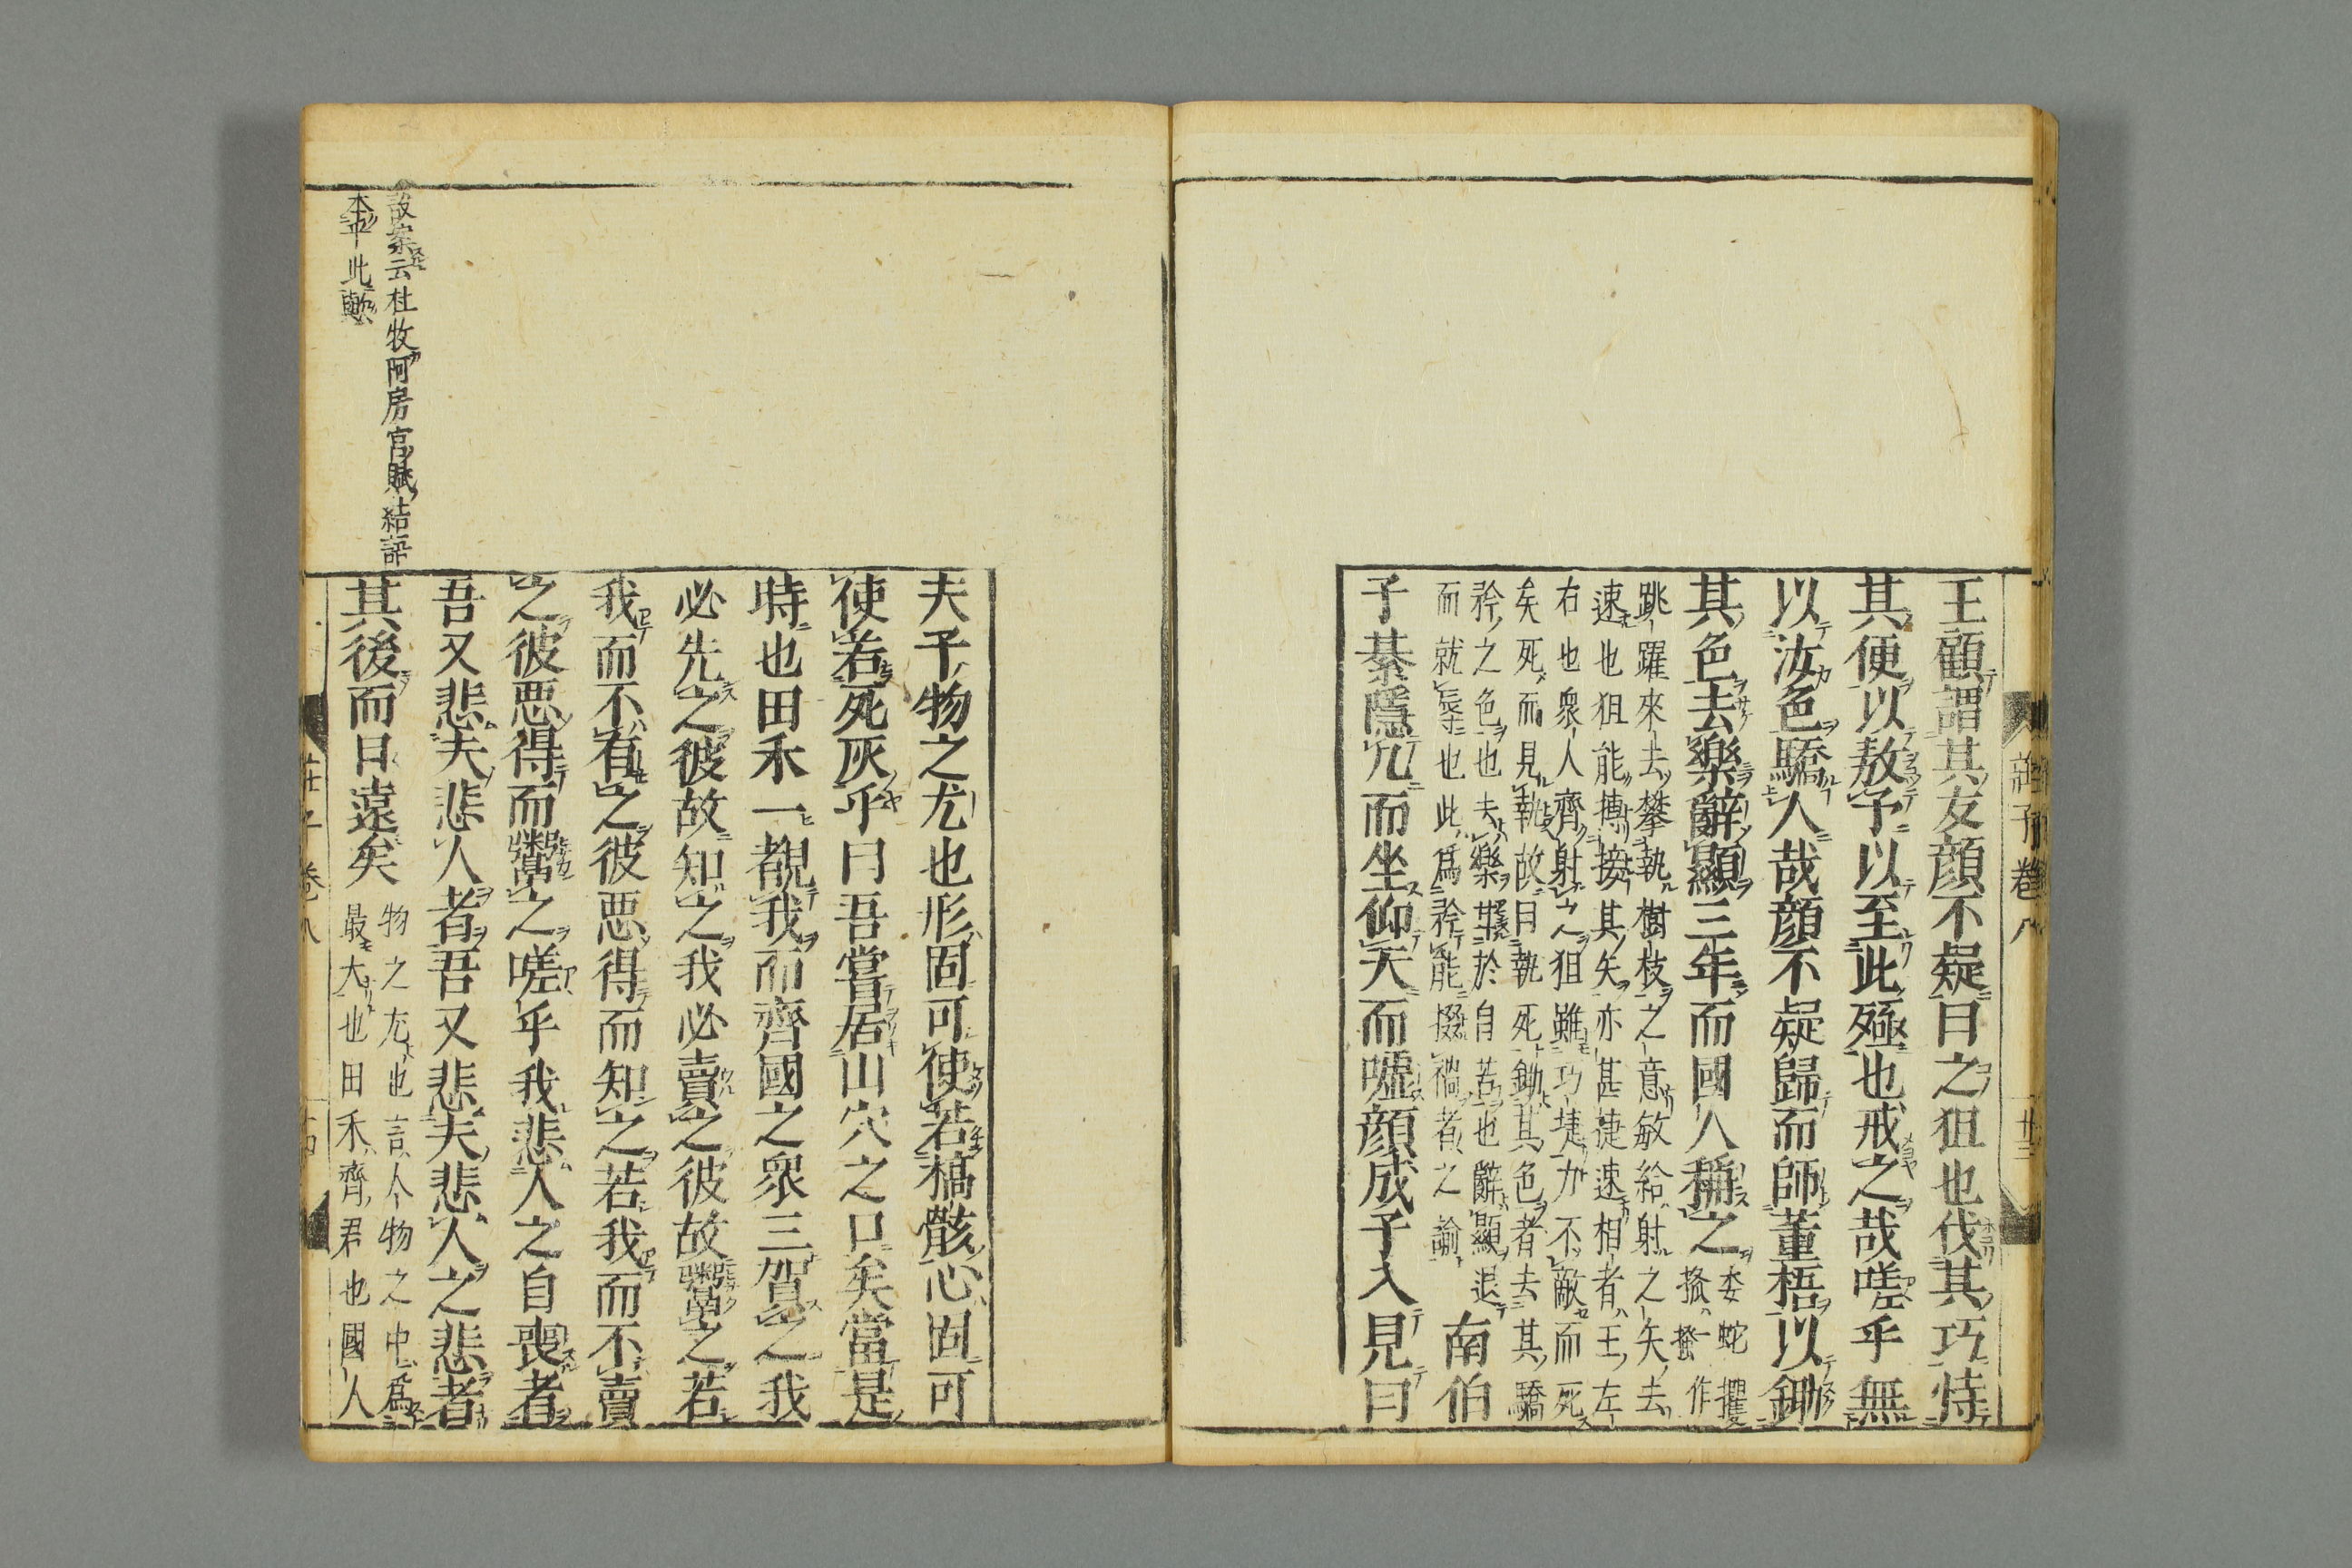 王顧謂其友顔不疑曰之狙也伐其巧恃
其便以敖予以至此殛也戒之哉嗟乎無
以汝色驕人哉顔不疑歸而師董梧以鋤
其色去樂辭顯三年而國人稱之
委蛇攫
搔一搔作
跳躍來去攀執樹枝之意敏給射之矢去
速也狙能搏接其矢亦甚捷速相者王左
右也衆人齊射之狙雖巧捷力不敵而死
矣死而見執故曰執死鋤其色者去其驕
矜之色也去樂甘於自苦也辭顯退
而就晦也此爲矜能掇禍者之諭
南伯
子綦隱几而坐仰天而嘘顔成子入見曰
莊子卷八
廿三
夫子物之尤也形固可使若槁骸心固可
使若死灰乎曰吾嘗居山穴之口矣當是
時也田禾一覩我而齊國之衆三賀之我
必先之彼故知之我必賣之彼故鬻之若
我而不有之彼惡得而知之若我而不賣
之彼惡得而鬻之嗟乎我悲人之自喪者
吾又悲夫悲人者吾又悲夫悲人之悲者
其後而日遠矣
物之尤也言人物之中爲
最大也田禾齊君也國人
敲案云杜牧阿房宮賦結語
本乎此歟
莊子卷八